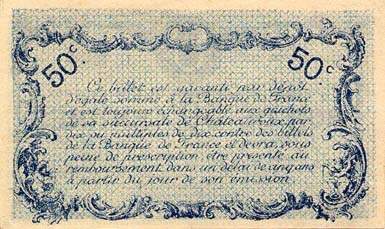 50c 50c
Ce billet est garanti par dépôt
d'égale somme à la Banque de France
et est toujours échangeable aux guichets
de sa succursale de Châteauroux par
dix ou multiples de dix contre des billets
de la Banque de France et devra, sous
peine de prescription, être présenté au
remboursement dans un délai de cinq ans
à partir du jour de son émission.